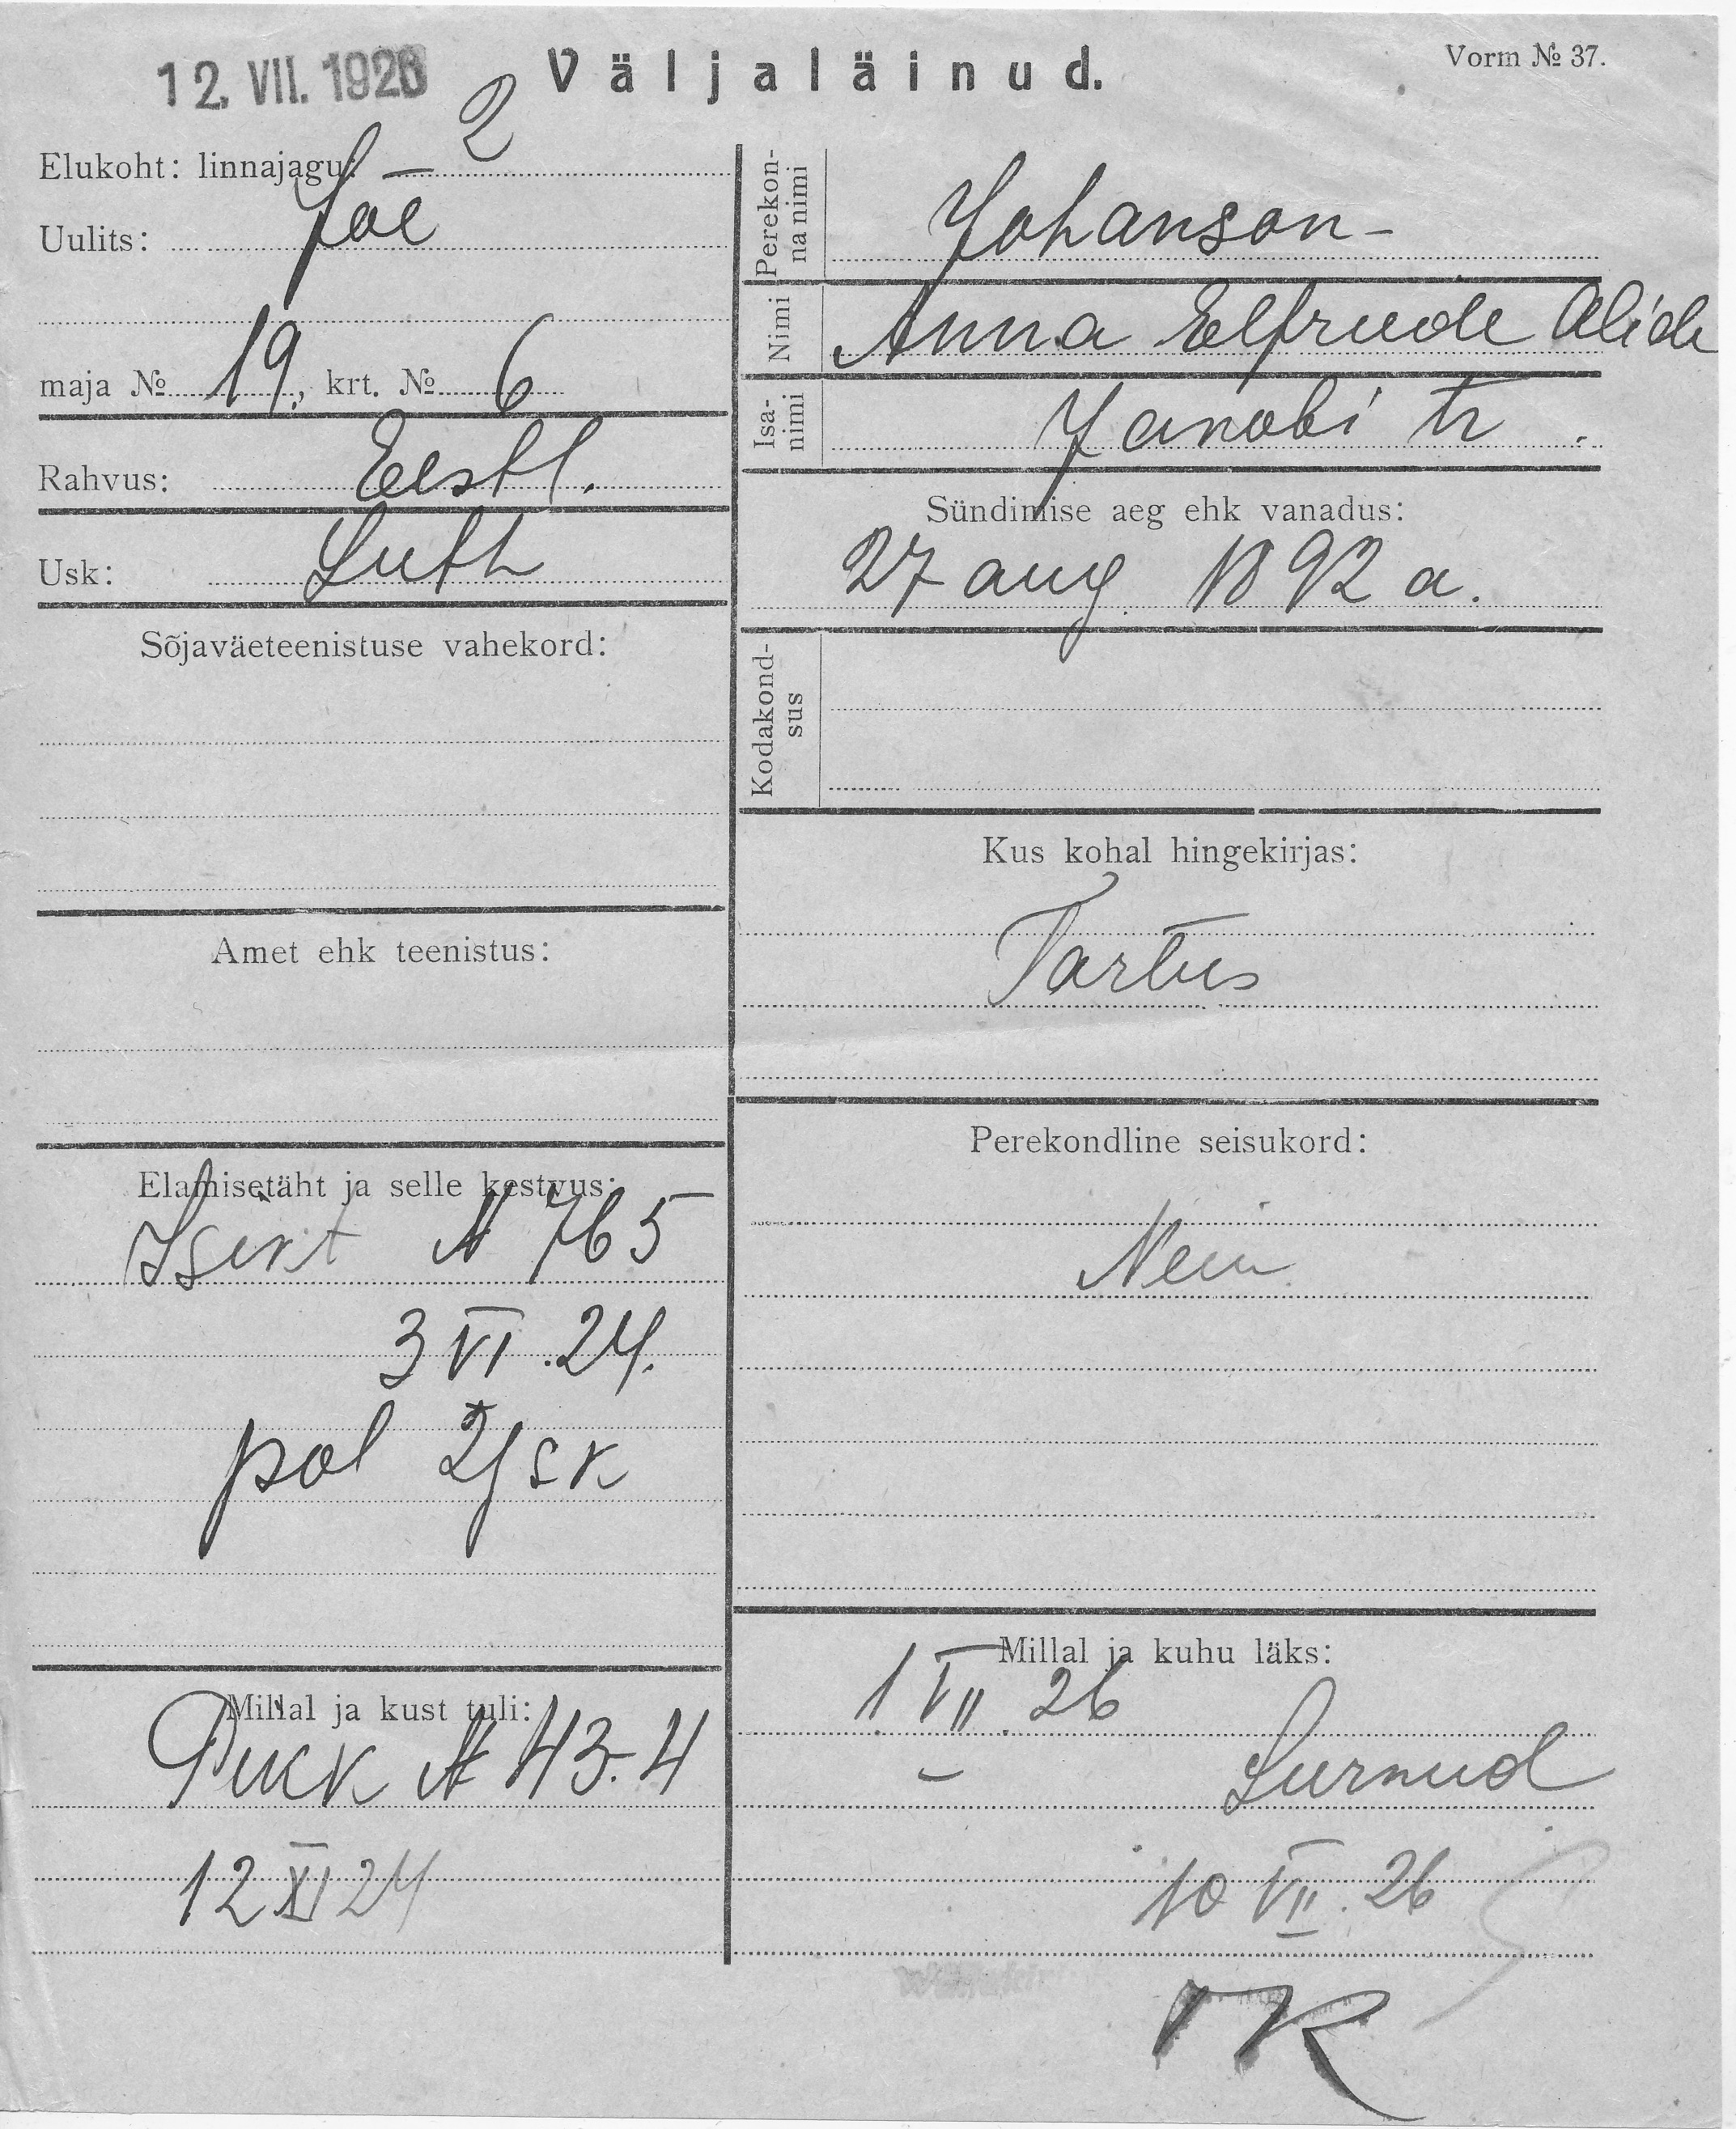 12. VII. 1926
Väljaläinud.
Vorm № 37.
Elukoht: linnajagu: 2
Uulits: Jõe
maja № 19, krt. № 6
Rahvus: Eestl.
Usk: Luth
Sõjaväeteenistuse vahekord:
Amet ehk teenistus:
Elamisetäht ja selle kestvus:
Isikt N 765
3 VI. 24.
pol 2 jsk
Millal ja kust tuli:
N 43-4
12 XI 24
Perekonna nimi Johanson-
Nimi Anna Elfriede Alide
Isanimi Jakobi tr.
Sündimise aeg ehk vanadus:
27 aug. 1892 a.
Kodakondsus
Kus kohal hingekirjas:
Tartus
Perekondline seisukord:
Neiu
Millal ja kuhu läks:
1 VII. 26
– Surnud
10 VII. 26